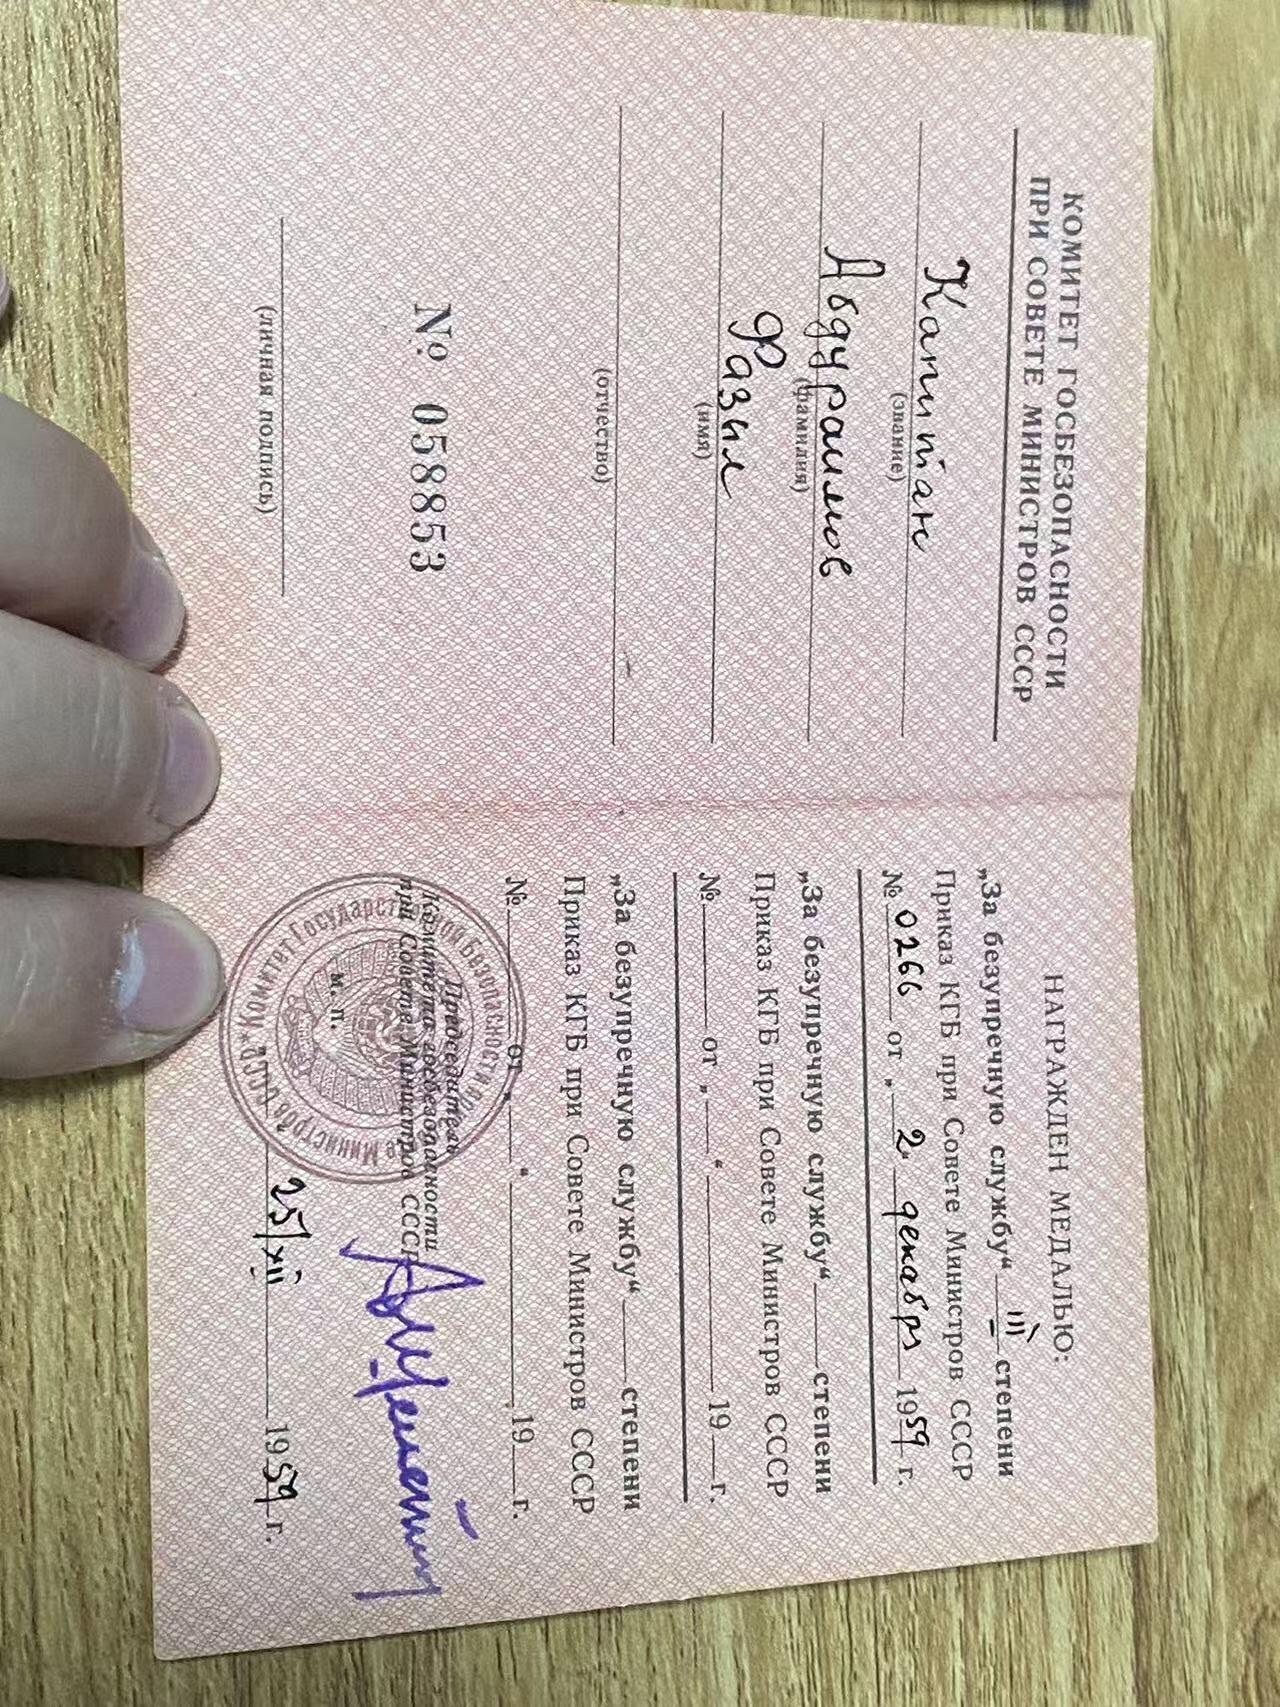 КОМИТЕТ ГОСБЕЗОПАСНОСТИ
ПРИ СОВЕТЕ МИНИСТРОВ СССР
Капитан
(звание)
Абдураимов
(фамилия)
Фазил
(имя)
(отчество)
№ 058853
(личная подпись)
НАГРАЖДЕН МЕДАЛЬЮ:
„За безупречную службу“ III степени
Приказ КГБ при Совете Министров СССР
№ 0266 от „ 2 декабря 1959 г.
„За безупречную службу“ степени
Приказ КГБ при Совете Министров СССР
№ от „ “ 19 г.
„За безупречную службу“ степени
Приказ КГБ при Совете Министров СССР
№ от „ “ 19 г.
Председатель
Комитета госбезопасности
при Совете Министров СССР
м. п.
25/XII 1959 г.
Комитет Государственной Безопасности при Совете Министров СССР